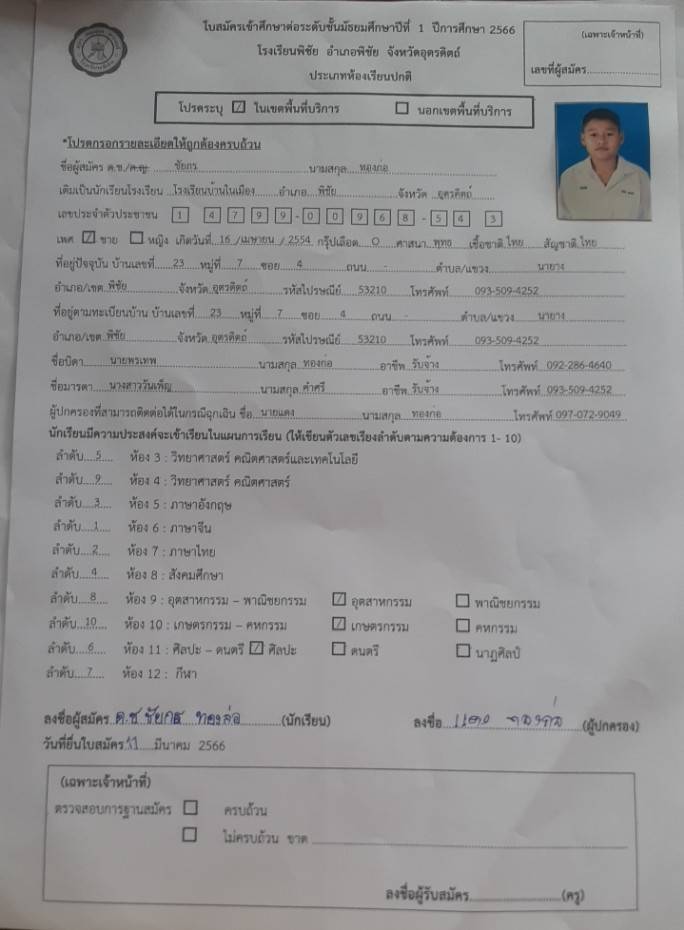 ใบสมัครเข้าศึกษาต่อระดับชั้นมัธยมศึกษาปีที่ 1 ปีการศึกษา 2566
(เฉพาะเจ้าหน้าที่)
โรงเรียนพิชัย อำเภอพิชัย จังหวัดอุตรดิตถ์
ประเภทห้องเรียนปกติ
เลขที่ผู้สมัคร
โปรดระบุ ☑ ในเขตพื้นที่บริการ ☐ นอกเขตพื้นที่บริการ
*โปรดกรอกรายละเอียดให้ถูกต้องครบถ้วน
ชื่อผู้สมัคร ด.ช./ด.ญ. ชัยกร นามสกุล ทองก่อ
เดิมเป็นนักเรียนโรงเรียน โรงเรียนบ้านในเมือง อำเภอ พิชัย จังหวัด อุตรดิตถ์
เลขประจำตัวประชาชน 1 4 7 9 9 - 0 0 9 6 8 - 5 4 3
เพศ ☑ ชาย ☐ หญิง เกิดวันที่ 16 /เมษายน / 2554 กรุ๊ปเลือด O ศาสนา พุทธ เชื้อชาติ ไทย สัญชาติ ไทย
ที่อยู่ปัจจุบัน บ้านเลขที่ 23 หมู่ที่ 7 ซอย 4 ถนน - ตำบล/แขวง นายาง
อำเภอ/เขต พิชัย จังหวัด อุตรดิตถ์ รหัสไปรษณีย์ 53210 โทรศัพท์ 093-509-4252
ที่อยู่ตามทะเบียนบ้าน บ้านเลขที่ 23 หมู่ที่ 7 ซอย 4 ถนน - ตำบล/แขวง นายาง
อำเภอ/เขต พิชัย จังหวัด อุตรดิตถ์ รหัสไปรษณีย์ 53210 โทรศัพท์ 093-509-4252
ชื่อบิดา นายพรเทพ นามสกุล ทองก่อ อาชีพ รับจ้าง โทรศัพท์ 092-286-4640
ชื่อมารดา นางสาววันเพ็ญ นามสกุล คำศรี อาชีพ รับจ้าง โทรศัพท์ 093-509-4252
ผู้ปกครองที่สามารถติดต่อได้ในกรณีฉุกเฉิน ชื่อ นายแดง นามสกุล ทองก่อ โทรศัพท์ 097-072-9049
นักเรียนมีความประสงค์จะเข้าเรียนในแผนการเรียน (ให้เขียนตัวเลขเรียงลำดับตามความต้องการ 1- 10)
ลำดับ 5 ห้อง 3 : วิทยาศาสตร์ คณิตศาสตร์และเทคโนโลยี
ลำดับ 9 ห้อง 4 : วิทยาศาสตร์ คณิตศาสตร์
ลำดับ 3 ห้อง 5 : ภาษาอังกฤษ
ลำดับ 1 ห้อง 6 : ภาษาจีน
ลำดับ 2 ห้อง 7 : ภาษาไทย
ลำดับ 4 ห้อง 8 : สังคมศึกษา
ลำดับ 8 ห้อง 9 : อุตสาหกรรม – พาณิชยกรรม ☑ อุตสาหกรรม ☐ พาณิชยกรรม
ลำดับ 10 ห้อง 10 : เกษตรกรรม – คหกรรม ☑ เกษตรกรรม ☐ คหกรรม
ลำดับ 6 ห้อง 11 : ศิลปะ – ดนตรี ☑ ศิลปะ ☐ ดนตรี ☐ นาฏศิลป์
ลำดับ 7 ห้อง 12 : กีฬา
ลงชื่อผู้สมัคร ด.ช ชัยกร ทองก่อ (นักเรียน) ลงชื่อ แดง ทองก่อ (ผู้ปกครอง)
วันที่ยื่นใบสมัคร 11 มีนาคม 2566
(เฉพาะเจ้าหน้าที่)
ตรวจสอบการฐานสมัคร ☐ ครบถ้วน
☐ ไม่ครบถ้วน ขาด
ลงชื่อผู้รับสมัคร (ครู)